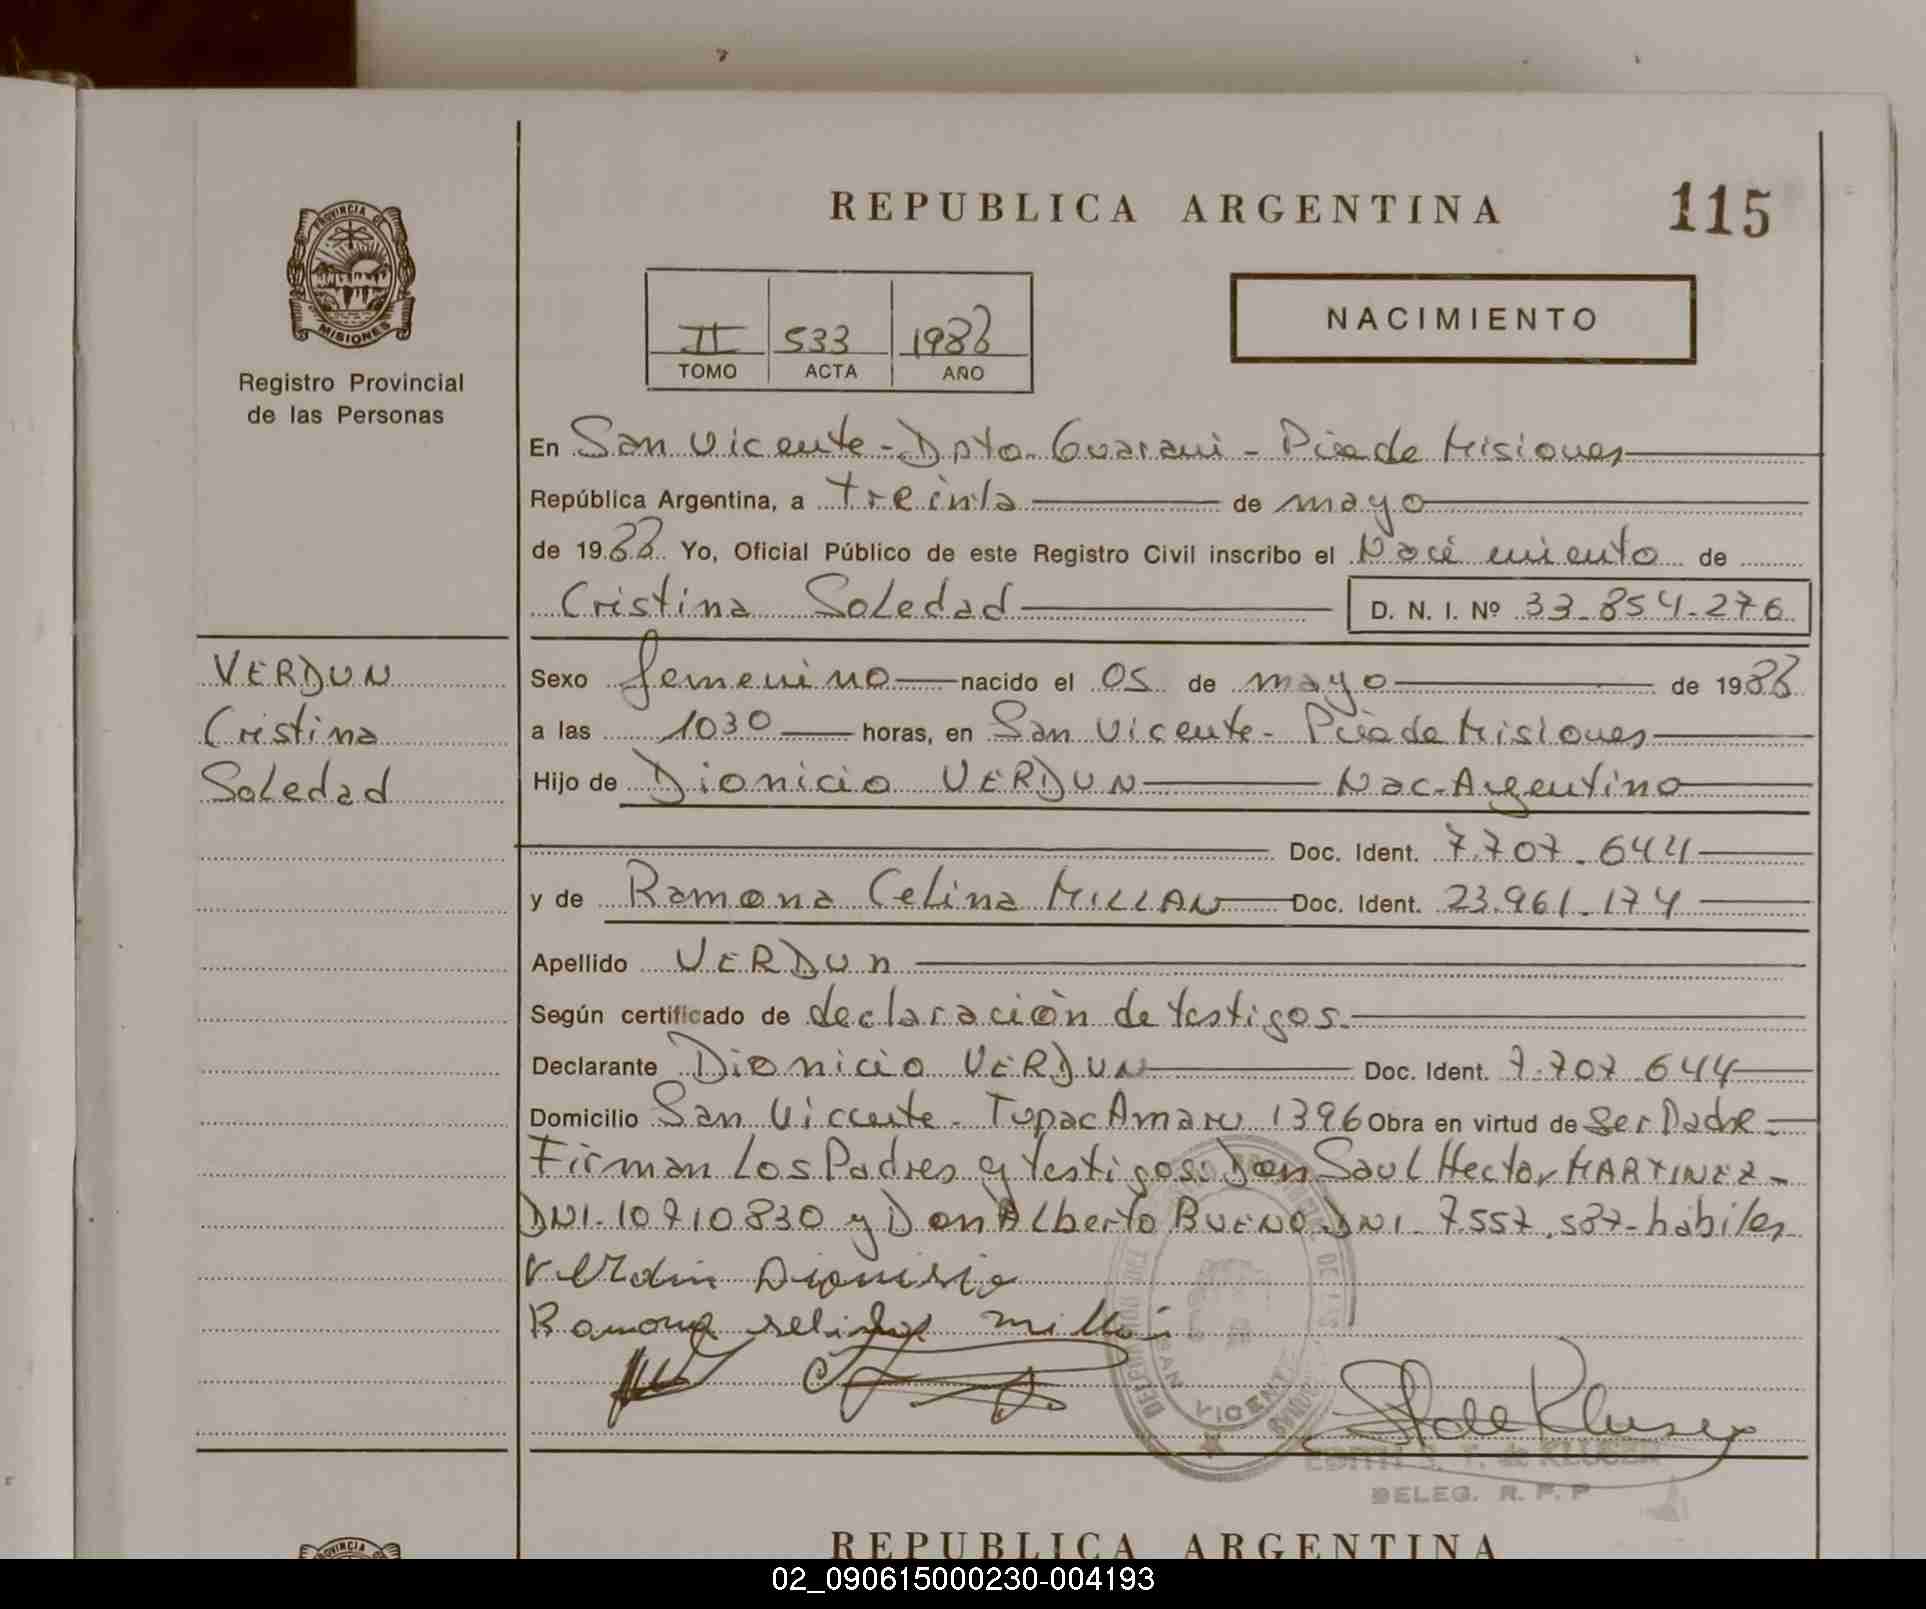 REPUBLICA ARGENTINA
115
PROVINCIA DE
MISIONES
Registro Provincial
de las Personas
II 533 1988
TOMO ACTA AÑO
NACIMIENTO
En San Vicente - Dpto. Guarani - Pcia de Misiones
República Argentina, a treinta de mayo
de 1988 Yo, Oficial Público de este Registro Civil inscribo el Nacimiento de
Cristina Soledad D. N. I. Nº 33.854.276
VERDUN
Cristina
Soledad
Sexo femenino nacido el 05 de mayo de 1988
a las 1030 horas, en San Vicente - Pcia de Misiones
Hijo de Dionicio VERDUN Nac. Argentino
Doc. Ident. 7.707.644
y de Ramona Celina MILLAN Doc. Ident. 23.961.174
Apellido VERDUN
Según certificado de declaración de testigos.
Declarante Dionicio VERDUN Doc. Ident. 7.707.644
Domicilio San Vicente - Tupac Amaru 1396 Obra en virtud de Ser Padre -
Firman Los Padres y testigos: Don Saul Hector MARTINEZ -
DNI. 10910830 y Don Alberto BUENO DNI. 7.557.587 - hábiles
Verdun Dionisio
Ramona selina millan
SAN VICENTE
EDITH S. F. de KLUSER
DELEG. R. P. P
REPUBLICA ARGENTINA
PROVINCIA
02_090615000230-004193